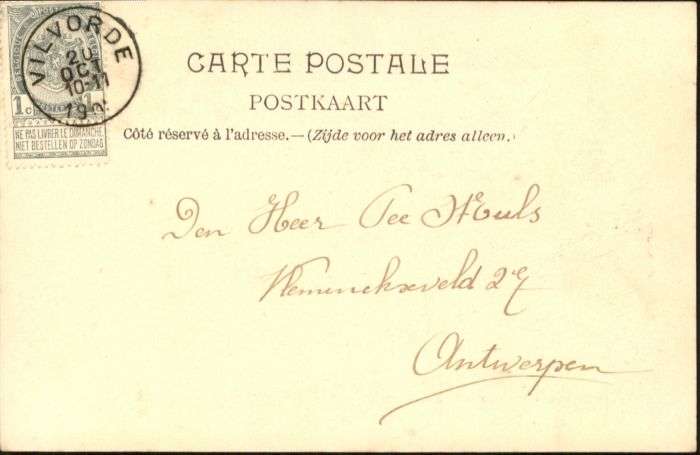 VILVORDE
20
OCT
10-11
190
1c 1c
NE PAS LIVRER LE DIMANCHE
NIET BESTELLEN OP ZONDAG
CARTE POSTALE
POSTKAART
Côté réservé à l'adresse.—(Zijde voor het adres alleen.)
Den Heer Tee
Antwerpen